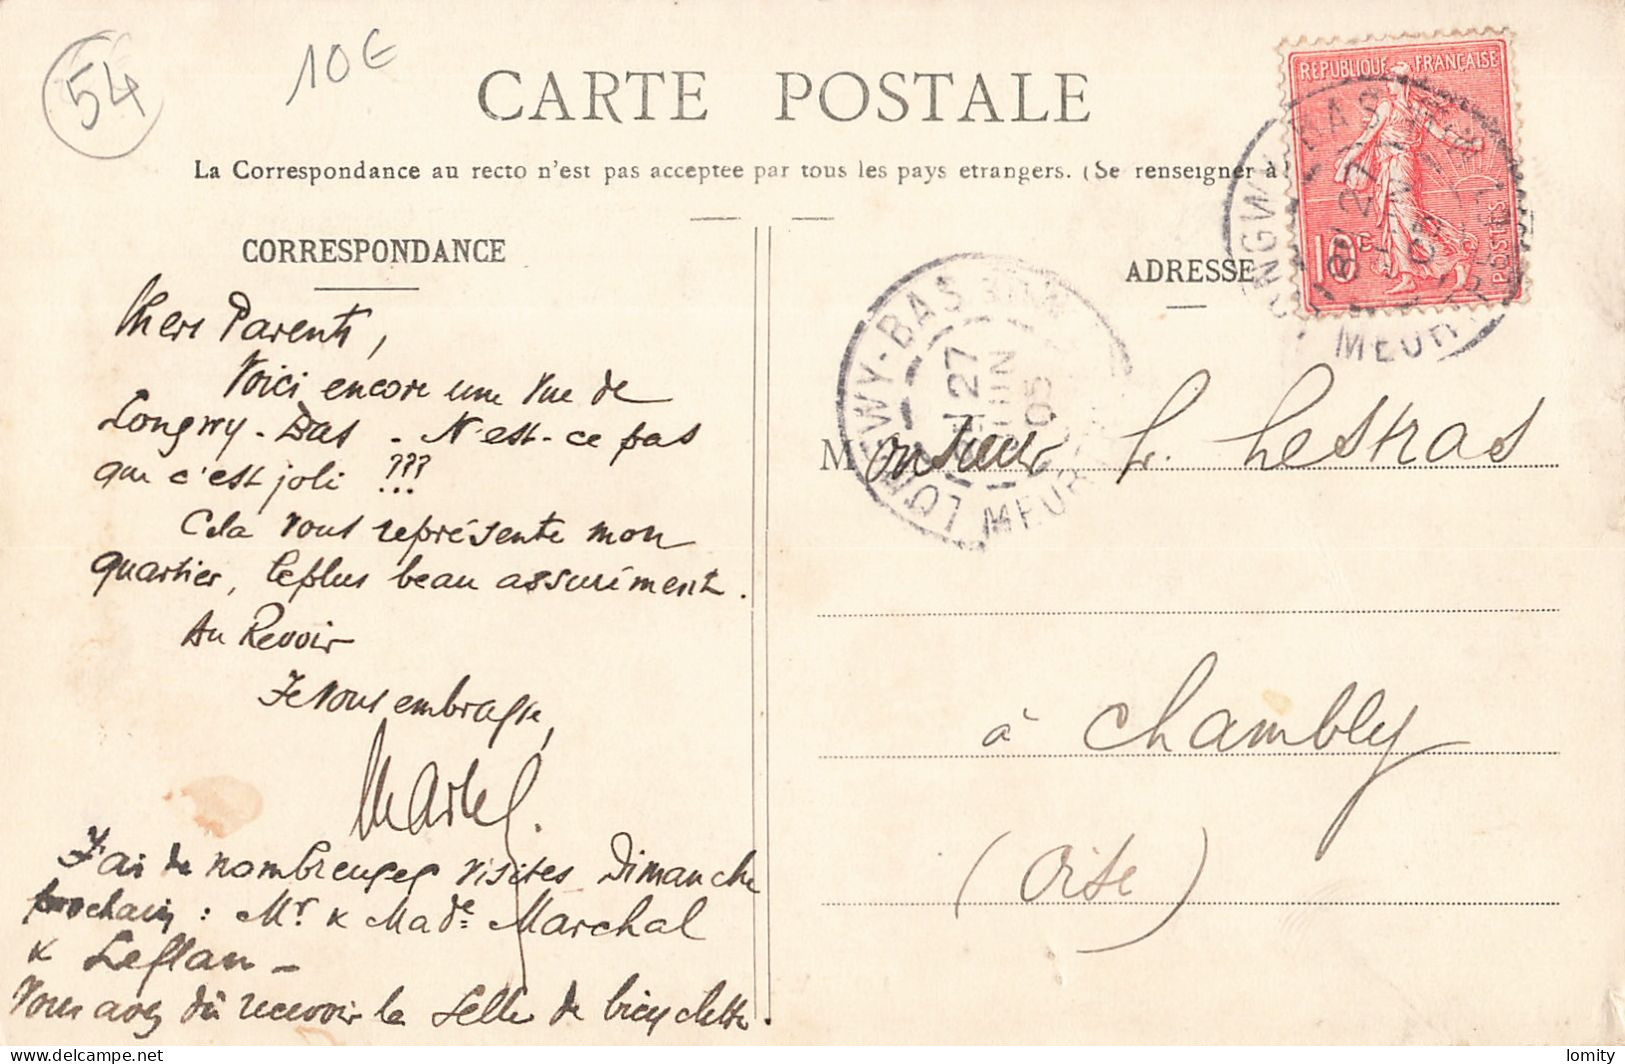 54
10€
CARTE POSTALE
La Correspondance au recto n'est pas acceptee par tous les pays etrangers. (Se renseigner à
REPUBLIQUE FRANÇAISE
10c
POSTES
LONGWY-BAS
27
JUIN
05
MEURTHE
CORRESPONDANCE
Chers Parents,
Voici encore une Vue de
Longwy-Bas - N'est-ce pas
que c'est joli ???
Cela Vous représente mon
quartier, le plus beau assurément.
Au Revoir
Je Vous embrasse,
Marcel.
J'ai de nombreuses visites Dimanche
prochain : Mr & Made Marchal
& Leflan -
Vous avez dû recevoir la selle de bicyclette.
LONGWY-BAS
27
JUIN
05
MEUR
ADRESSE
Monsieur h. Lestras
à Chambly
(Oise)
delcampe.net
lomity